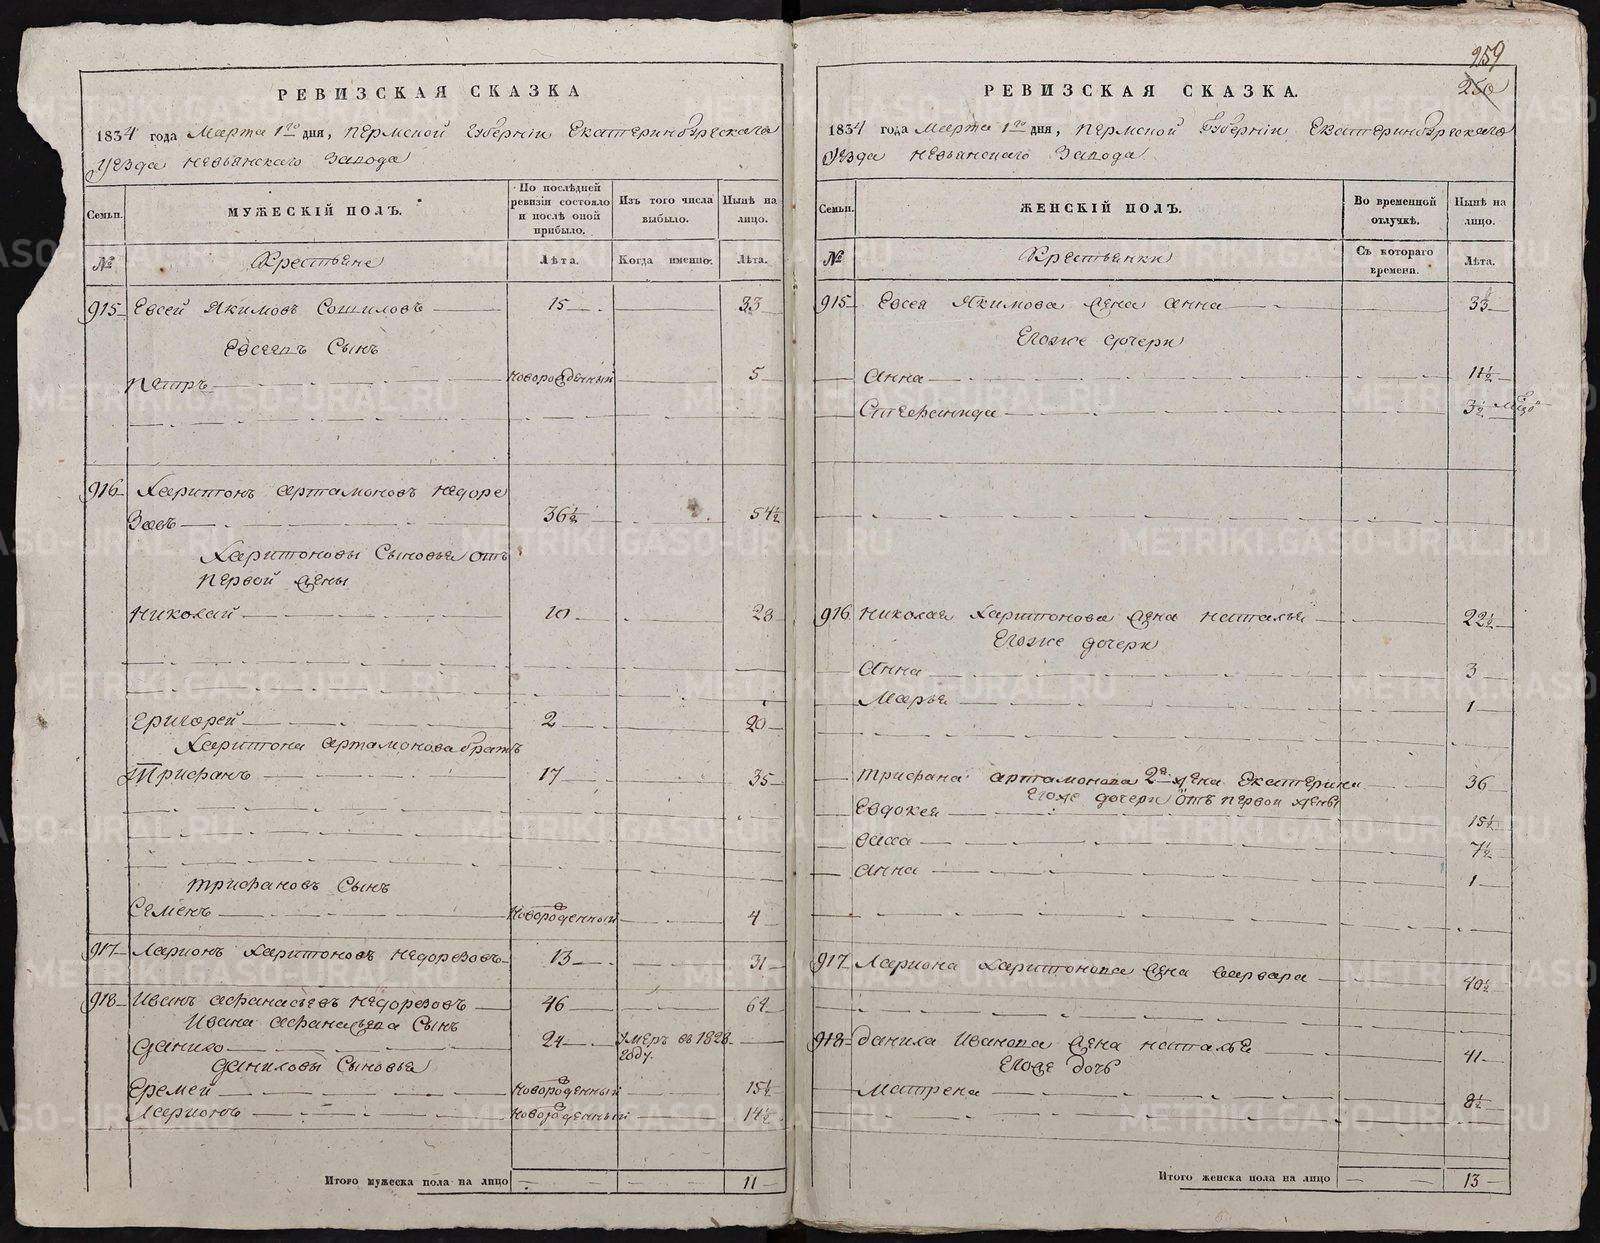 РЕВИЗСКАЯ СКАЗКА
1834 года Марта 1го дня, Пермской Губерніи Екатеринбургскаго
Уезда Невьянскаго Завода
Семьи.
МУЖЕСКІЙ ПОЛЪ.
По послѣдней ревизіи состояло и послѣ оной прибыло.
Изъ того числа выбыло.
Нынѣ на лицо.
№
Крестьяне
Лѣта.
Когда именно.
Лѣта.
915 Евсей Якимовъ Сошиловъ 15 33
Евсеевъ Сынъ
Петръ новорожденный 5
916 Харитонъ Артамоновъ Недоре
зовъ 36½ 54½
Харитоновы Сыновья отъ
первой жены
Николай 10 28
Григорей 2 20
Харитона Артамонова братъ
Трифанъ 17 35
Трифановъ Сынъ
Семенъ Новорожденный 4
917 Ларионъ Харитоновъ Недорезовъ 13 31
918 Иванъ Афанасьевъ Недорезовъ 46 64
Ивана Афанасьева Сынъ
Данило 24 умеръ въ 1828 году.
Даниловы Сыновья
Еремей Новорожденный 15½
Ларионъ новорожденный 14½
Итого мужеска пола на лицо 11
959
250
РЕВИЗСКАЯ СКАЗКА.
1834 года Марта 1го дня, Пермской Губерніи Екатеринбургскаго
Уезда Невьянскаго Завода
Семьи.
ЖЕНСКІЙ ПОЛЪ.
Во временной отлучкѣ.
Нынѣ на лицо.
№
Крестьянки
Съ котораго времени.
Лѣта.
915 Евсея Якимова жена Анна 33
Егоже дочери
Анна 11½
Стефанида 3½
916 Николая Харитонова жена Наталья 22½
Егоже дочери
Анна 3
Марья 1
Трифана Артамонова 2я жена Екатерина 36
Егоже дочери отъ первой жены
Евдокея 15½
Васса 7½
Анна 1
917 Лариона Харитонова жена Варвара 40½
918 Данила Иванова жена Наталья 41
Егоже дочь
Матрена 8½
Итого женска пола на лицо 13
METRIKI.GASO-URAL.RU